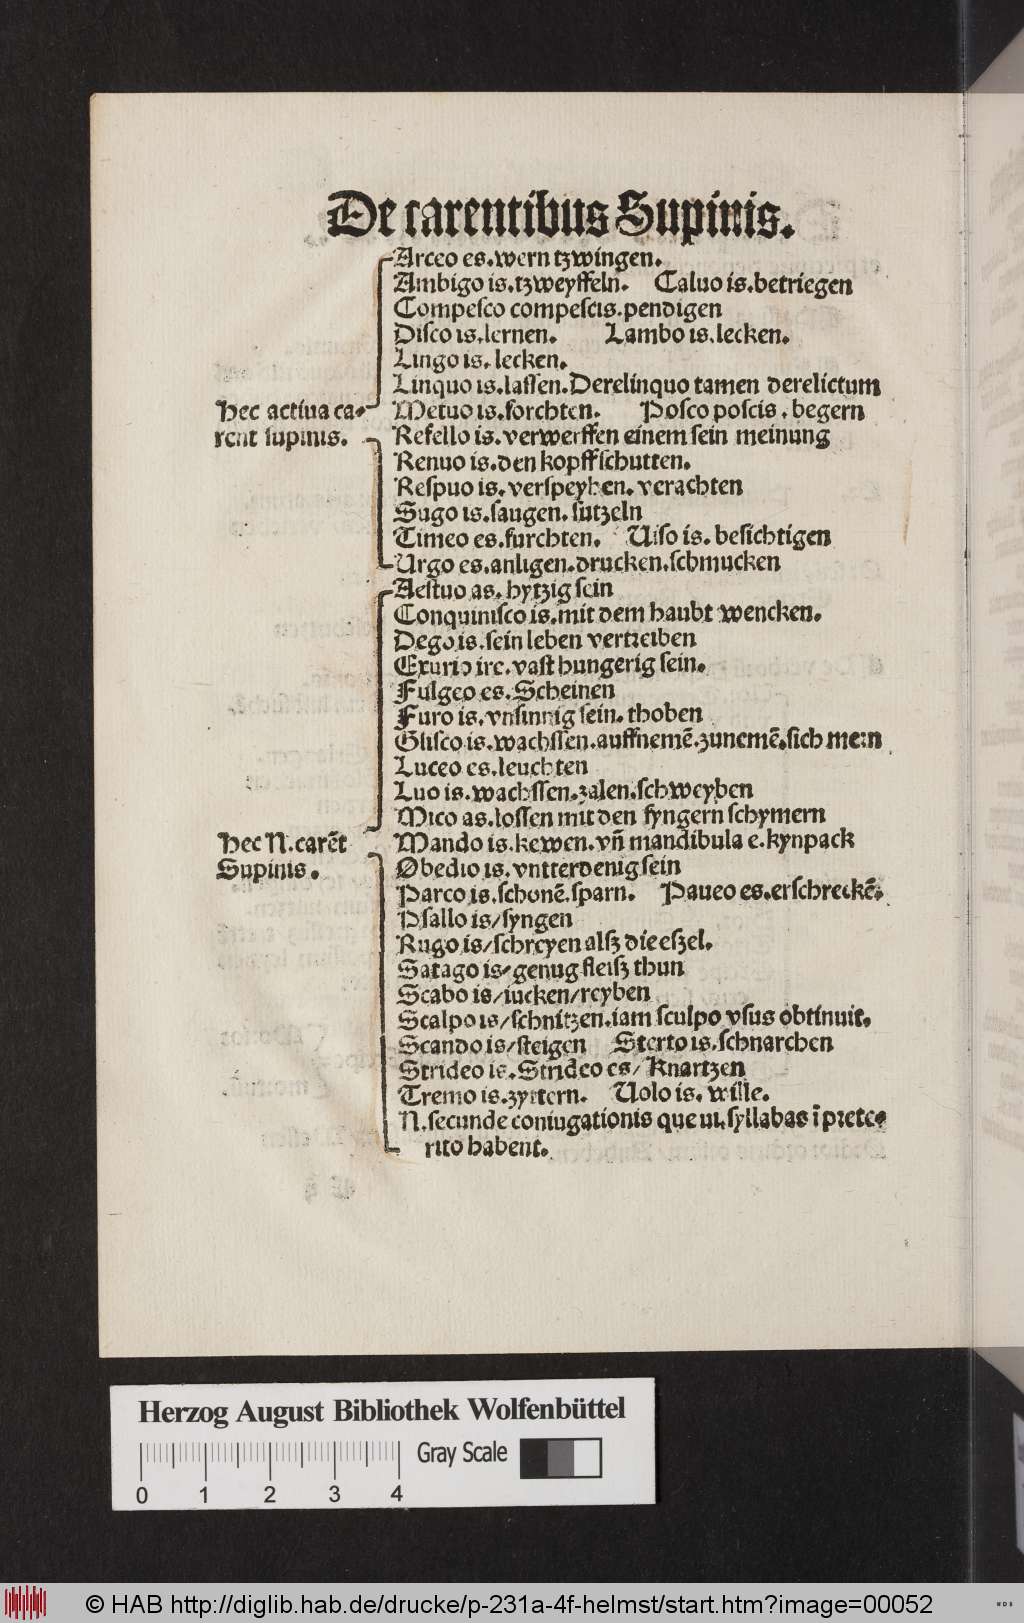 De carentibus Supinis.
Arceo es. wern tzwingen.
Ambigo is. tzweyffeln. Caluo is. betriegen
Compesco compescis. pendigen
Disco is. lernen. Lambo is. lecken.
Lingo is. lecken.
Linquo is. lassen. Derelinquo tamen derelictum
Hec actiua ca- Metuo is. forchten. Posco poscis. begern
rent supinis. Refello is. verwerffen einem sein meinung
Renuo is. den kopff schutten.
Respuo is. verspeyhen. verachten
Sugo is. saugen. sutzeln
Timeo es. furchten. Uiso is. besichtigen
Urgo es. anligen. drucken. schmucken
Aestuo as. hytzig sein
Conquinisco is. mit dem haubt wencken.
Dego is. sein leben vertreiben
Exurio ire. vast hungerig sein.
Fulgeo es. Scheinen
Furo is. vnsinnig sein. thoben
Glisco is. wachssen. auffnemē. zunemē. sich mern
Luceo es. leuchten
Luo is. wachssen. zalen. schweyben
Mico as. lossen mit den fyngern schymern
Hec N. carēt Mando is. kewen. vn̄ mandibula e. kynpack
Supinis. Obedio is. vntterdenig sein
Parco is. schonē. sparn. Paueo es. erschreckē.
Psallo is/ syngen
Rugo is/ schreyen alsz die eszel.
Satago is/ genug fleisz thun
Scabo is/ iucken/ reyben
Scalpo is/ schnitzen. iam sculpo vsus obtinuit.
Scando is/ steigen Sterto is. schnarchen
Strideo is. Strideo es/ Knartzen
Tremo is. zyttern. Uolo is. wille.
N. secunde coniugationis que ui. syllabas ī prete-
rito habent.
Herzog August Bibliothek Wolfenbüttel
Gray Scale
0 1 2 3 4
© HAB http://diglib.hab.de/drucke/p-231a-4f-helmst/start.htm?image=00052